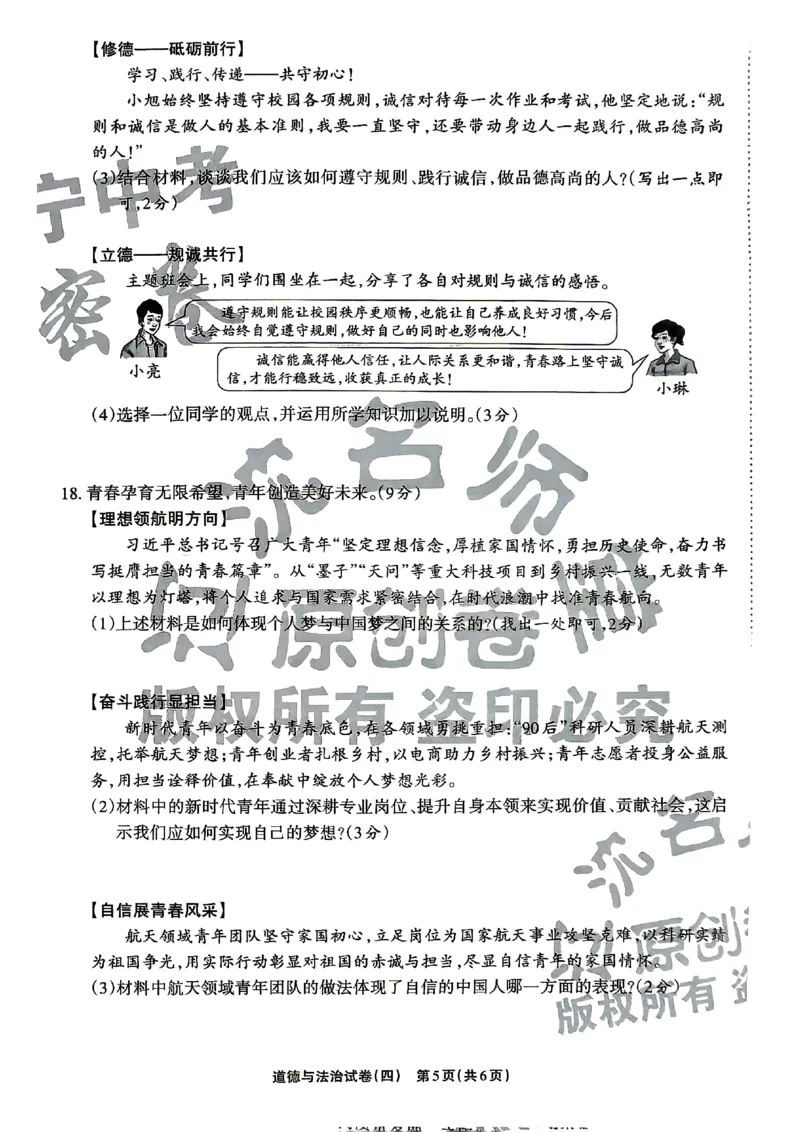 【修德——砥砺前行】
学习、践行、传递——共守初心!
小旭始终坚持遵守校园各项规则,诚信对待每一次作业和考试,他坚定地说:“规
则和诚信是做人的基本准则,我要一直坚守,还要带动身边人一起践行,做品德高尚
的人!”
(3)结合材料,谈谈我们应该如何遵守规则、践行诚信,做品德高尚的人?(写出一点即
可,2分)
宁中考
密卷
【立德——规诚共行】
主题班会上,同学们围坐在一起,分享了各自对规则与诚信的感悟。
遵守规则能让校园秩序更顺畅,也能让自己养成良好习惯,今后
我会始终自觉遵守规则,做好自己的同时也影响他人!
小亮
诚信能赢得他人信任,让人际关系更和谐,青春路上坚守诚
信,才能行稳致远,收获真正的成长!
小琳
(4)选择一位同学的观点,并运用所学知识加以说明。(3分)
18. 青春孕育无限希望,青年创造美好未来。(9分)
【理想领航明方向】
习近平总书记号召广大青年“坚定理想信念,厚植家国情怀,勇担历史使命,奋力书
写挺膺担当的青春篇章”。从“墨子”“天问”等重大科技项目到乡村振兴一线,无数青年
以理想为灯塔,将个人追求与国家需求紧密结合,在时代浪潮中找准青春航向。
(1)上述材料是如何体现个人梦与中国梦之间的关系的?(找出一处即可,2分)
流名师
原创卷
版权所有 盗印必究
【奋斗践行显担当】
新时代青年以奋斗为青春底色,在各领域勇挑重担:“90后”科研人员深耕航天测
控,托举航天梦想;青年创业者扎根乡村,以电商助力乡村振兴;青年志愿者投身公益服
务,用担当诠释价值,在奉献中绽放个人梦想光彩。
(2)材料中的新时代青年通过深耕专业岗位、提升自身本领来实现价值、贡献社会,这启
示我们应如何实现自己的梦想?(3分)
流名
原创
版权所有
【自信展青春风采】
航天领域青年团队坚守家国初心,立足岗位为国家航天事业攻坚克难,以科研实绩
为祖国争光,用实际行动彰显对祖国的赤诚与担当,尽显自信青年的家国情怀。
(3)材料中航天领域青年团队的做法体现了自信的中国人哪一方面的表现?(2分)
道德与法治试卷(四) 第5页(共6页)